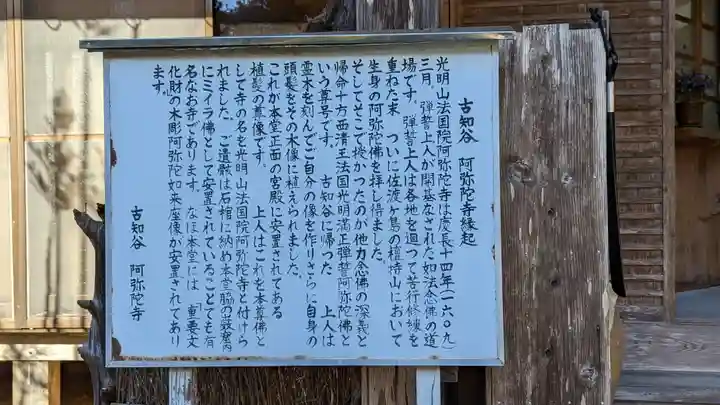 古知谷 阿弥陀寺縁起
光明山法国院阿弥陀寺は慶長十四年(一六〇九)
三月、弾誓上人が開基なされた如法念佛の道
場です。弾誓上人は各地を廻って苦行修練を
重ねた末 ついに佐渡ヶ島の檀特山において
生身の阿弥陀佛を拝し悟ました。
そしてそこで授かったのが他力念佛の深義と
帰命十方西清王法国光明満正弾誓阿弥陀佛と
いう尊号です。 古知谷に帰った 上人は
霊木を刻んでご自分の像を作りさらに自身の
頭髪をその木像に植えられました。
これが本堂正面の宮殿に安置されてある
植髪の尊像です。 上人はこれを本尊佛と
して寺の名を光明山法国院阿弥陀寺と付けら
れました。ご遺骸は石棺に納め本堂脇の巌窟内
にミイラ佛として安置されていることでも有
名なお寺であります。なほ本堂には「重要文
化財の木彫阿弥陀如来座像が安置されてあり
ます。
古知谷 阿弥陀寺